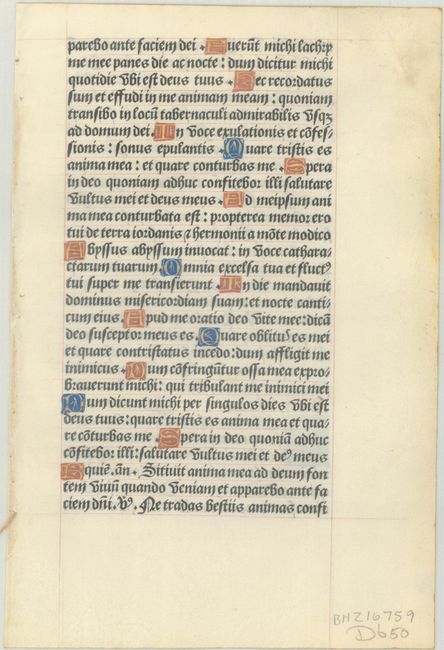 parebo ante faciem dei. Fuerūt michi lachry
me mee panes die ac nocte: dum dicitur michi
quotidie vbi est deus tuus. Hec recordatus
sum et effudi in me animam meam: quoniam
transibo in locū tabernaculi admirabilis vsqꝫ
ad domum dei. In voce exulationis et cōfes-
sionis: sonus epulantis. Quare tristis es
anima mea: et quare conturbas me. Spera
in deo quoniam adhuc confitebor illi salutare
vultus mei et deus meus. Ad meipsum ani
ma mea conturbata est: propterea memor ero
tui de terra iordanis ⁊ hermonii a mōte modico
Abyssus abyssum inuocat: in voce cathara-
ctarum tuarum. Omnia excelsa tua et fluctꝰ
tui super me transierunt. In die mandauit
dominus misericordiam suam: et nocte canti-
cum eius. Apud me oratio deo vite mee: dicā
deo susceptor meus es. Quare oblitꝰ es mei
et quare contristatus incedo: dum affligit me
inimicus. Dum cōfringūtur ossa mea expro-
brauerunt michi: qui tribulant me inimici mei
Dum dicunt michi per singulos dies vbi est
deus tuus: quare tristis es anima mea et qua-
re cōturbas me. Spera in deo quoniā adhuc
cōfitebor illi: salutare vultus mei et deꝰ meus
Requiē. añ. Sitiuit anima mea ad deum fon
tem viuū quando veniam et apparebo ante fa
ciem dñi. Ne tradas bestiis animas confi
BHZ16759
D650